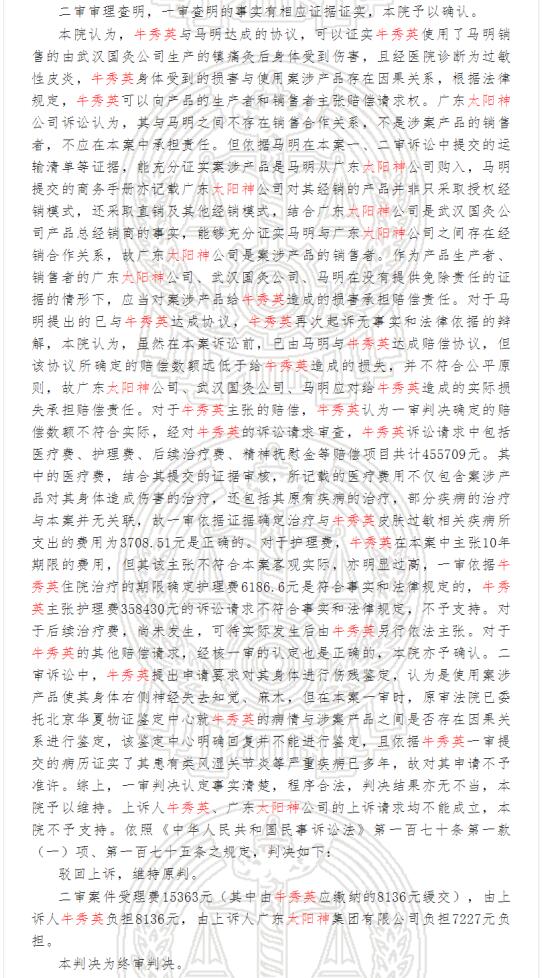 二审审理查明，一审查明的事实有相应证据证实，本院予以确认。
本院认为，牛秀英与马明达成的协议，可以证实牛秀英使用了马明销
售的由武汉国灸公司生产的镇痛灸后身体受到伤害，且经医院诊断为过敏
性皮炎，牛秀英身体受到的损害与使用案涉产品存在因果关系，根据法律
规定，牛秀英可以向产品的生产者和销售者主张赔偿请求权。广东太阳神
公司诉讼认为，其与马明之间不存在销售合作关系，不是涉案产品的销售
者，不应在本案中承担责任。但依据马明在本案一、二审诉讼中提交的运
输清单等证据，能充分证实案涉产品是马明从广东太阳神公司购入，马明
提交的商务手册亦记载广东太阳神公司对其经销的产品并非只采取授权经
销模式，还采取直销及其他经销模式，结合广东太阳神公司是武汉国灸公
司产品总经销商的事实，能够充分证实马明与广东太阳神公司之间存在经
销合作关系，故广东太阳神公司是案涉产品的销售者。作为产品生产者、
销售者的广东太阳神公司、武汉国灸公司、马明在没有提供免除责任的证
据的情形下，应当对案涉产品给牛秀英造成的损害承担赔偿责任。对于马
明提出的已与牛秀英达成协议，牛秀英再次起诉无事实和法律依据的辩
解，本院认为，虽然在本案诉讼前，已由马明与牛秀英达成赔偿协议，但
该协议所确定的赔偿数额远低于给牛秀英造成的损失，并不符合公平原
则，故广东太阳神公司、武汉国灸公司、马明应对给牛秀英造成的实际损
失承担赔偿责任。对于牛秀英主张的赔偿，牛秀英认为一审判决确定的赔
偿数额不符合实际，经对牛秀英的诉讼请求审查，牛秀英诉讼请求中包括
医疗费、护理费、后续治疗费、精神抚慰金等赔偿项目共计455709元。其
中的医疗费，结合其提交的证据审核，所记载的医疗费用不仅包含案涉产
品对其身体造成伤害的治疗，还包括其原有疾病的治疗，部分疾病的治疗
与本案并无关联，故一审依据证据确定治疗与牛秀英皮肤过敏相关疾病所
支出的费用为3708.51元是正确的。对于护理费，牛秀英在本案中主张10年
期限的费用，但其该主张不符合本案客观实际，亦明显过高，一审依据牛
秀英住院治疗的期限确定护理费6186.6元是符合事实和法律规定的，牛秀
英主张护理费358430元的诉讼请求不符合事实和法律规定，不予支持。对
于后续治疗费，尚未发生，可待实际发生后由牛秀英另行依法主张。对于
牛秀英的其他赔偿请求，经核一审的认定也是正确的，本院亦予确认。二
审诉讼中，牛秀英提出申请要求对其身体进行伤残鉴定，认为是使用案涉
产品使其身体右侧神经失去知觉、麻木，但在本案一审时，原审法院已委
托北京华夏物证鉴定中心就牛秀英的病情与涉案产品之间是否存在因果关
系进行鉴定，该鉴定中心明确回复并不能进行鉴定，且依据牛秀英一审提
交的病历证实了其患有类风湿关节炎等严重疾病已多年，故对其申请不予
准许。综上，一审判决认定事实清楚，程序合法，判决结果亦无不当，本
院予以维持。上诉人牛秀英、广东太阳神公司的上诉请求均不能成立，本
院不予支持。依照《中华人民共和国民事诉讼法》第一百七十条第一款
（一）项、第一百七十五条之规定，判决如下：
驳回上诉，维持原判。
二审案件受理费15363元（其中由牛秀英应缴纳的8136元缓交），由上
诉人牛秀英负担8136元，由上诉人广东太阳神集团有限公司负担7227元负
担。
本判决为终审判决。